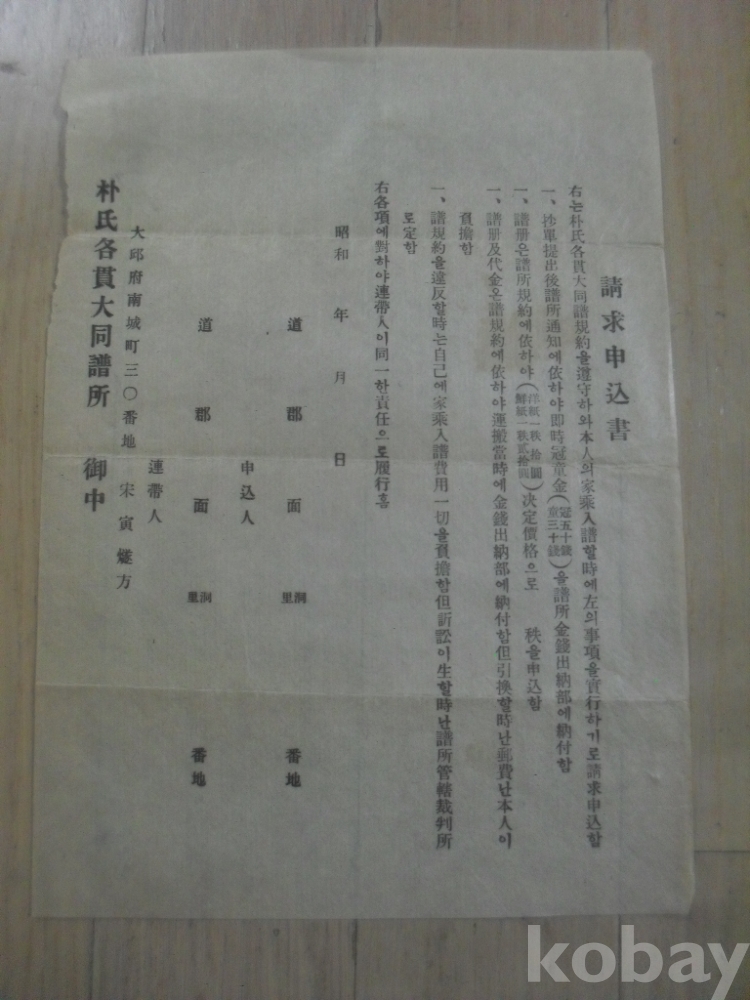 請求申込書
右는朴氏各貫大同譜規約을遵守하와本人의家乘入譜할時에左의事項을實行하기로請求申込함
一、抄單提出後譜所通知에依하야即時冠童金(冠五十錢 童三十錢)을譜所金錢出納部에納付함
一、譜册은譜所規約에依하야(洋紙一秩 拾圓 鮮紙一秩貳拾圓)决定價格으로 秩을申込함
一、譜册及代金은譜規約에依하야運搬當時에金錢出納部에納付함但引換할時난郵費난本人이
負擔함
一、譜規約을違反할時는自己에家乘入譜費用一切을負擔함但訴訟이生할時난譜所管轄裁判所
로定함
右各項에對하야連帶人이同一한責任으로履行홈
昭和 年 月 日
道 郡 面 洞里 番地
申込人
道 郡 面 洞里 番地
連帶人
大邱府南城町三〇番地 宋寅 方
朴氏各貫大同譜所 御中
kobay